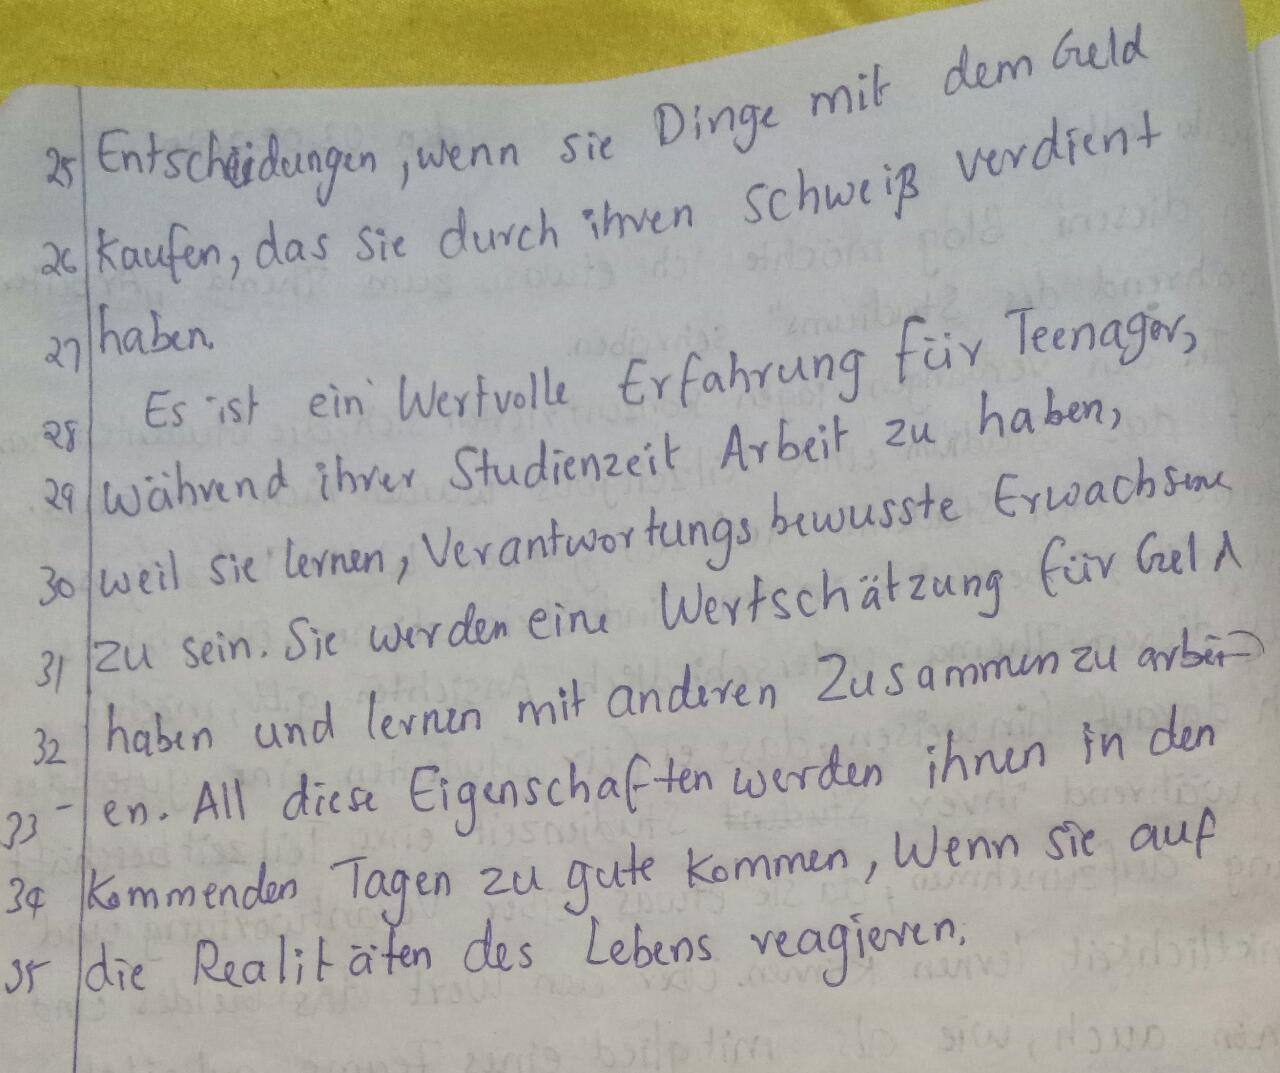 25 Entscheidungen, wenn sie Dinge mit dem Geld
26 kaufen, das sie durch ihren schweiß verdient
27 haben.
28 Es ist ein Wertvolle Erfahrung für Teenager,
29 während ihrer Studienzeit Arbeit zu haben,
30 weil sie lernen, Verantwortungsbewusste Erwachsene
31 zu sein. Sie werden eine Wertschätzung für Geld
32 haben und lernen mit anderen Zusammen zu arbei-
33 - en. All diese Eigenschaften werden ihnen in den
34 kommenden Tagen zu gute kommen, Wenn sie auf
35 die Realitäten des Lebens reagieren.